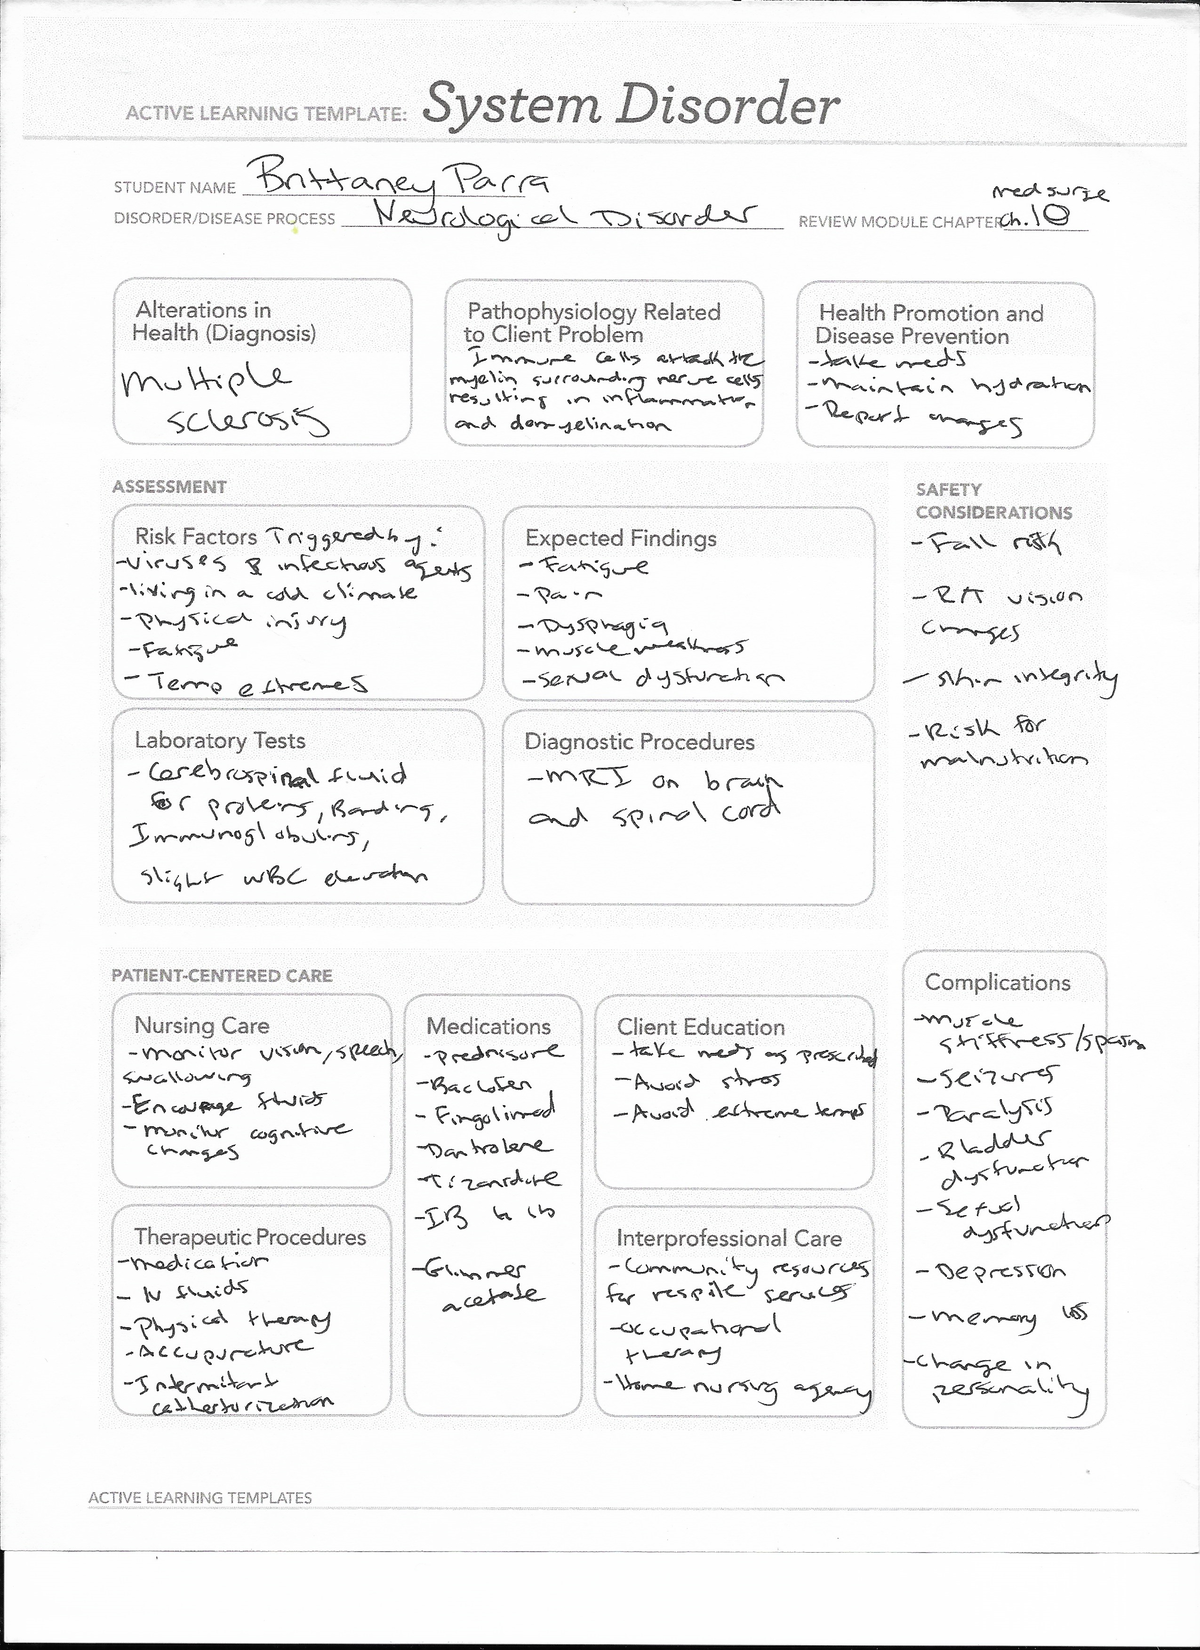 ACTIVE LEARNING TEMPLATE: System Disorder
STUDENT NAME Brittaney Parra
med surge
DISORDER/DISEASE PROCESS Neurological Disorder REVIEW MODULE CHAPTER ch.10
Alterations in
Health (Diagnosis)
Multiple
sclerosis
Pathophysiology Related
to Client Problem
Immune cells attack the
myelin surrounding nerve cells
resulting in inflammation
and demyelination
Health Promotion and
Disease Prevention
-take meds
-maintain hydration
-Report changes
ASSESSMENT
Risk Factors Triggered by:
-viruses & infectious agents
-living in a cold climate
-Physical injury
-Fatigue
-Temp extremes
Expected Findings
-Fatigue
-Pain
-Dysphagia
-muscle weakness
-sexual dysfunction
Laboratory Tests
-Cerebrospinal fluid
for proteins, Banding,
Immunoglobulins,
slight WBC elevation
Diagnostic Procedures
-MRI on brain
and spinal cord
SAFETY
CONSIDERATIONS
-Fall risk
-R/T vision
changes
-skin integrity
-Risk for
malnutrition
PATIENT-CENTERED CARE
Nursing Care
-monitor vision, speech,
swallowing
-Encourage fluids
-monitor cognitive
changes
Medications
-Prednisone
-Baclofen
-Fingolimod
-Dantrolene
-Tizanidine
-Glimmer
acetate
Client Education
-take meds as prescribed
-Avoid stress
-Avoid extreme temps
Therapeutic Procedures
-medication
-IV fluids
-Physical therapy
-Accupuncture
-Intermitant
catheterization
Interprofessional Care
-Community resources
for respite services
-occupational
therapy
-Home nursing agency
Complications
-Muscle
stiffness/spasm
-Seizures
-Paralysis
-Bladder
dysfunction
-Sexual
dysfunction
-Depression
-memory loss
-Change in
personality
ACTIVE LEARNING TEMPLATES